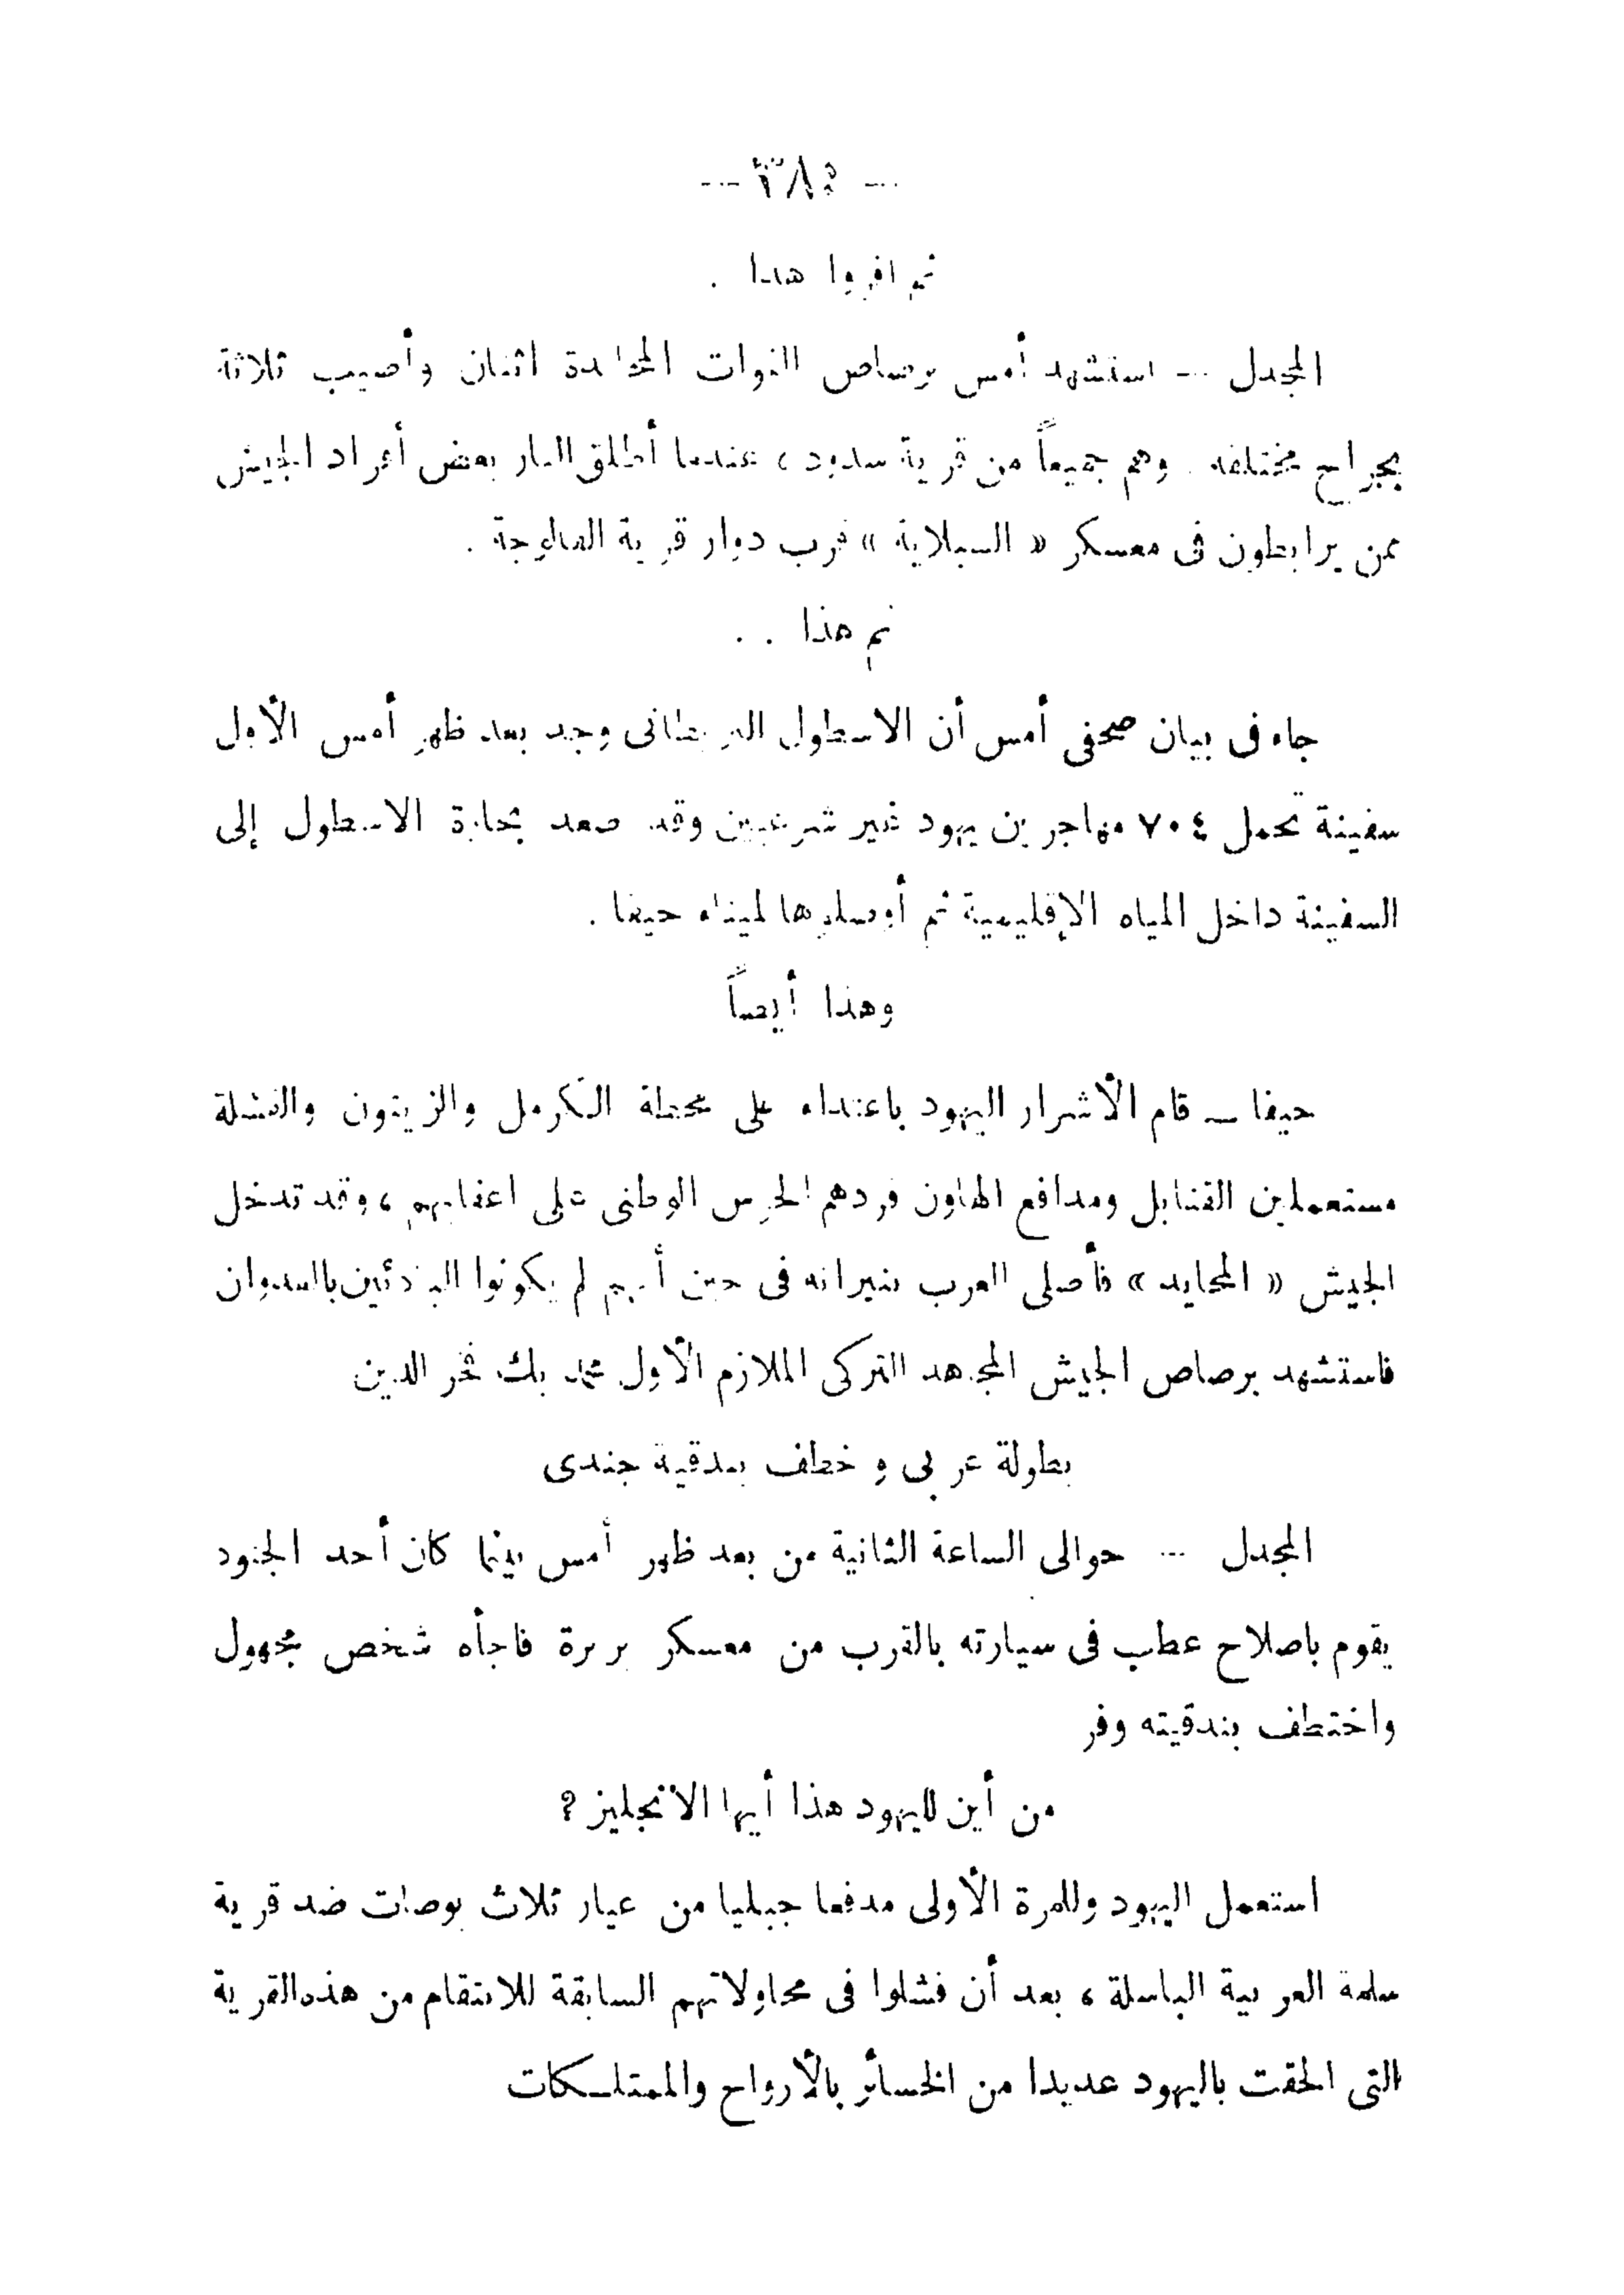 — ٣٨٤ —
ثم اقرءوا هذا .
المجدل — استشهد أمس برصاص القوات المحايدة اثنان وأصيب ثلاثة
بجراح مختلفة . وهم جميعاً من قرية سدود ، عندما أطلق النار بعض أفراد الجيش
ممن يرابطون فى معسكر « السبلاية » قرب دوار قرية الفالوجة .
ثم هذا . .
جاء فى بيان صحفى أمس أن الاسطول البريطانى وجد بعد ظهر أمس الأول
سفينة تحمل ٧٠٤ مهاجرين يهود غير شرعيين وقد صعد بحارة الاسطول إلى
السفينة داخل المياه الإقليمية ثم أوصلوها لميناء حيفا .
وهذا أيضاً
حيفا — قام الأشرار اليهود باعتداء على محطة الكرمل والزيتون والقشلة
مستعملين القنابل ومدافع الهاون فردهم الحرس الوطنى على اعقابهم ، وقد تدخل
الجيش « المحايد » فأصلى العرب بنيرانه فى حين أنهم لم يكونوا البادئين بالعدوان
فاستشهد برصاص الجيش المجاهد التركى الملازم الأول محمد بك فخر الدين
بطولة عربى و خطف بندقية جندى
المجدل — حوالى الساعة الثانية من بعد ظهر أمس بينما كان أحد الجنود
يقوم باصلاح عطب فى سيارته بالقرب من معسكر بربرة فاجأه شخص مجهول
واختطف بندقيته وفر
من أين لليهود هذا أيها الانجليز ؟
استعمل اليهود وللمرة الأولى مدفعا جبليا من عيار ثلاث بوصات ضد قرية
سلمة العربية الباسلة ، بعد أن فشلوا فى محاولاتهم السابقة للانتقام من هذه القرية
التى الحقت باليهود عديدا من الخسائر بالأرواح والممتلكات